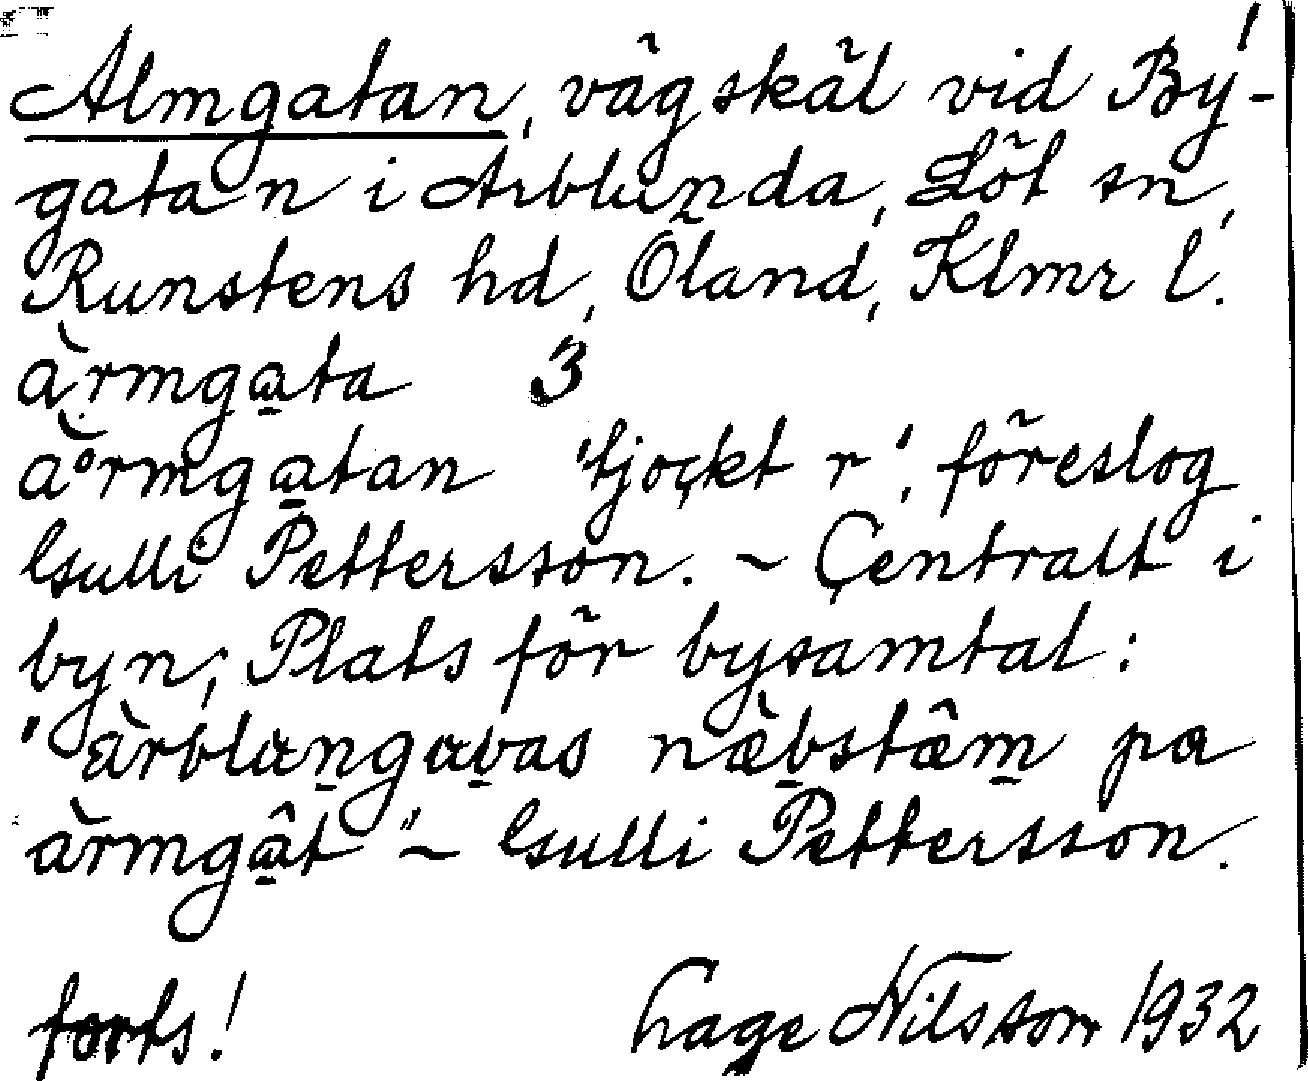 Almgatan, vägskäl vid By-
gatan i Arblunda, Löt sn,
Runstens hd, Öland, Klmr l.
àrmga̱ta 3
àormga̱tan 'tjockt r', föreslog
Gulli Pettersson. ~ Centralt i
byn; Plats för bysamtal:
" àrblaṉgaḇas næ̀ḇstâm̱ pa
àrmgâ̱t " ~ Gulli Pettersson.
forts! Hage Nilsson 1932